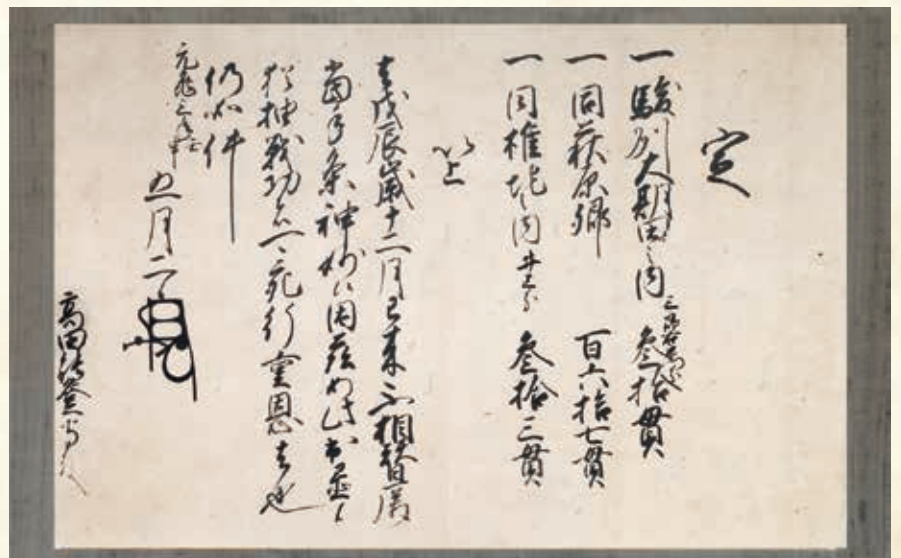 定
一駿州大期田之内 参拾貫
一同萩原郷 百六拾七貫
一同椎地之内 参拾三貫
以上
去戊辰歳十二月已来不相替属
当手条神妙候因茲如此出置候
猶抽戦功者可宛行重恩者也
仍如件
元亀三年壬申
五月二日
高田能登守殿